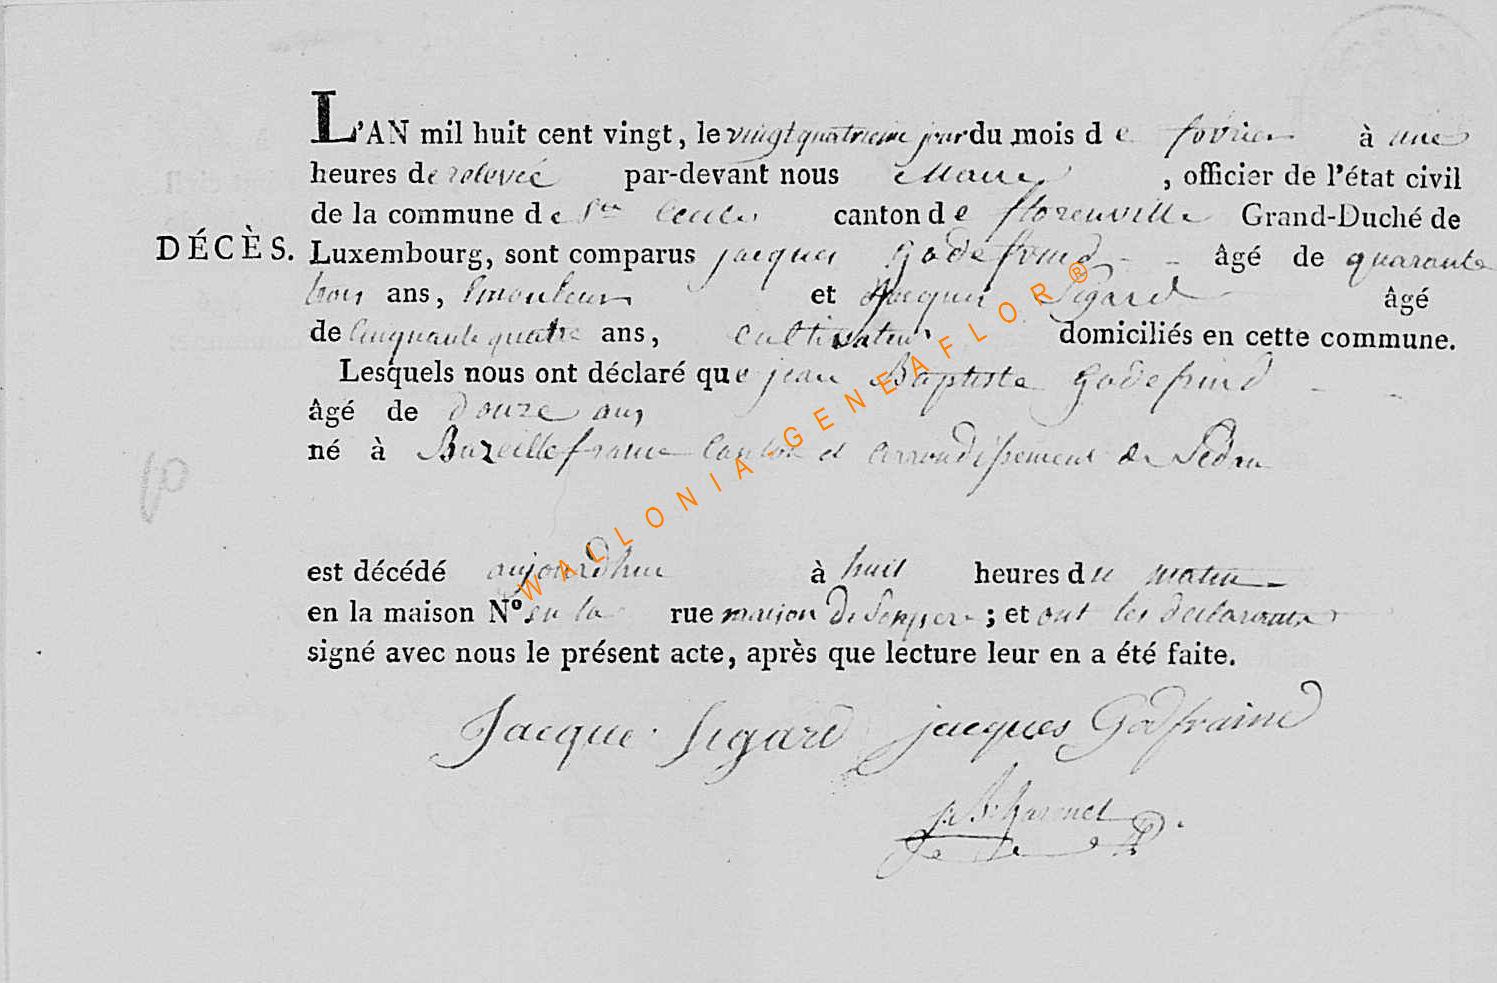 L'AN mil huit cent vingt, le vingt quatrieme jour du mois de fevrier à une
heures de relevée par-devant nous Maire, officier de l'état civil
de la commune de Ste Cecile canton de florenville Grand-Duché de
DÉCÈS. Luxembourg, sont comparus jacques Godefroid âgé de quarante
trois ans, Emouleur et Jacques Sigard âgé
de cinquante quatre ans, cultivateur domiciliés en cette commune.
Lesquels nous ont déclaré que jean Baptiste Godefrind
âgé de douze ans
né à Bazeille france Canton et arrondissement de Sedan
est décédé aujourdhui à huit heures du matin
en la maison N° en la rue maison de ; et ont les declarants
signé avec nous le présent acte, après que lecture leur en a été faite.
Jacque Sigard jacques Godfraind
WALLONIA-GENEAFLOR®